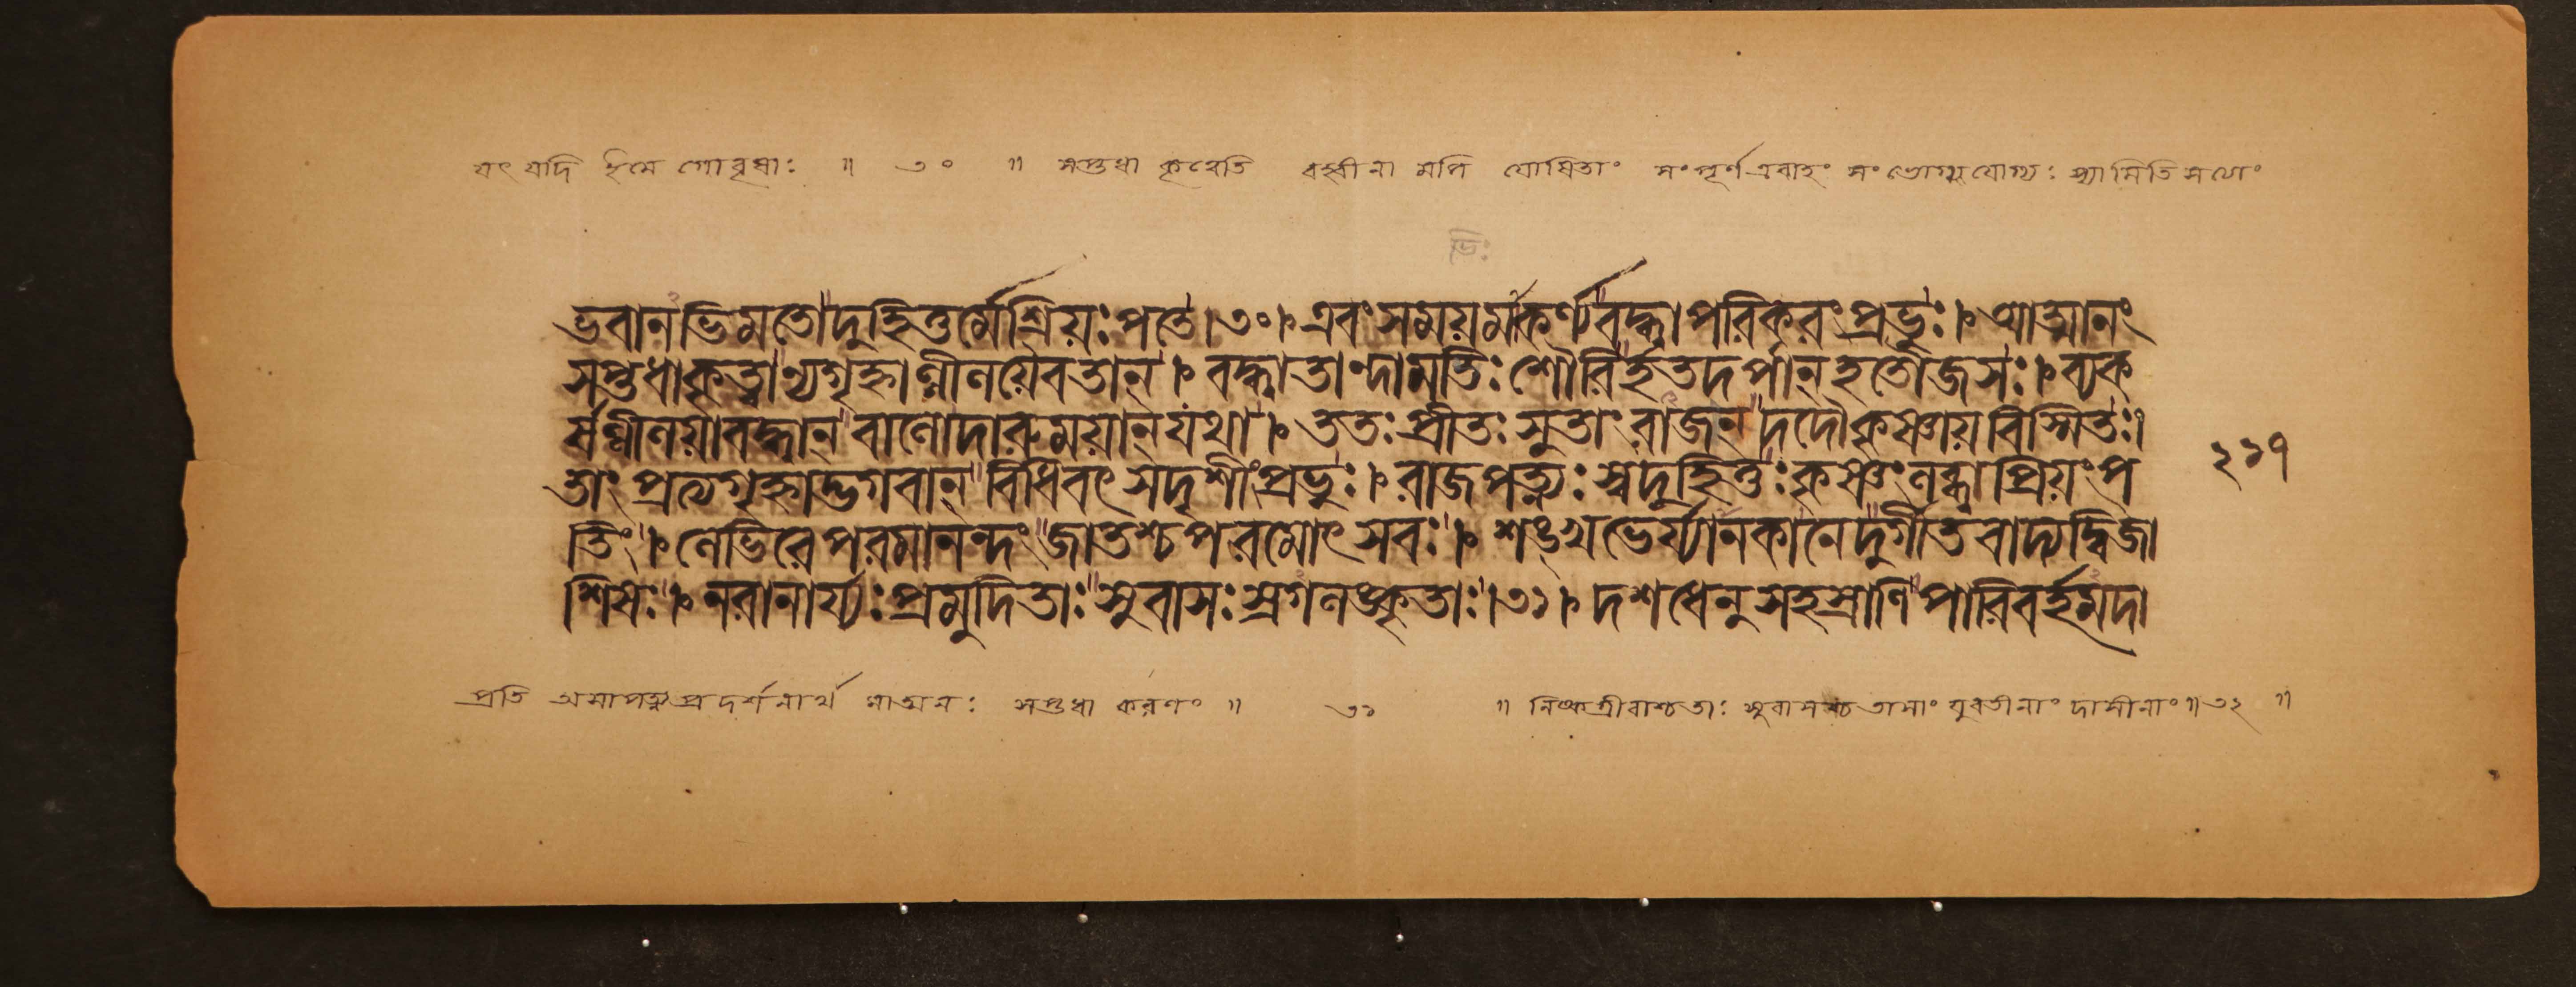 যৎ যদি ইমে গোবৃষাঃ ॥ ৩০ ॥ সপ্তধা কৃত্বেতি বহ্বীনা মপি যোষিতাং সংপূর্ণ এবাহং সংভোগ্যযোগ্যঃ স্যামিতি মণেং
ভিঃ
ভবানভিমতোদুহিতুর্মেশ্রিয়ঃপতে।৩০। এবং সময়মাকর্ণ্যবদ্ধ্বাপরিকরংপ্রভুঃ। আত্মানং
সপ্তধাকৃত্বান্যগৃহ্ণাল্লীলয়ৈবতান্। বদ্ধ্বাতান্দামভিঃশৌরির্হতদর্পান্হতৌজসঃ। ব্যক
র্ষল্লীলয়াবদ্ধান্ বালোদারুময়ান্যথা। ততঃপ্রীতঃসুতাং রাজন্ দদৌকৃষ্ণায়বিস্মিতঃ।
তাং প্রত্যগৃহ্ণাদ্ভগবান্ বিধিবৎ সদৃশীংপ্রভুঃ। রাজপত্ন্যঃস্বদুহিতুঃকৃষ্ণংলব্ধ্বাপ্রিয়ংপ
২১৭
তিং। লেভিরেপরমানন্দং জাতশ্চপরমোৎসবঃ। শঙ্খভের্য্যানকানেদুর্গীতবাদ্যদ্বিজা
শিষঃ। নরানার্য্যঃপ্রমুদিতাঃসুবাসঃস্রগলঙ্কৃতাঃ।৩১। দশধেনুসহস্রাণিপারিবর্হমদা
প্রতি অসাপত্ন্যপ্রদর্শনার্থ মাত্মনঃ সপ্তধা করণং ॥ ৩১ ॥ নিষ্কগ্রীবাশ্চতাঃ সুবাসশ্চ তাসাং যুবতীনাং দাসীনাং ॥ ৩২ ॥